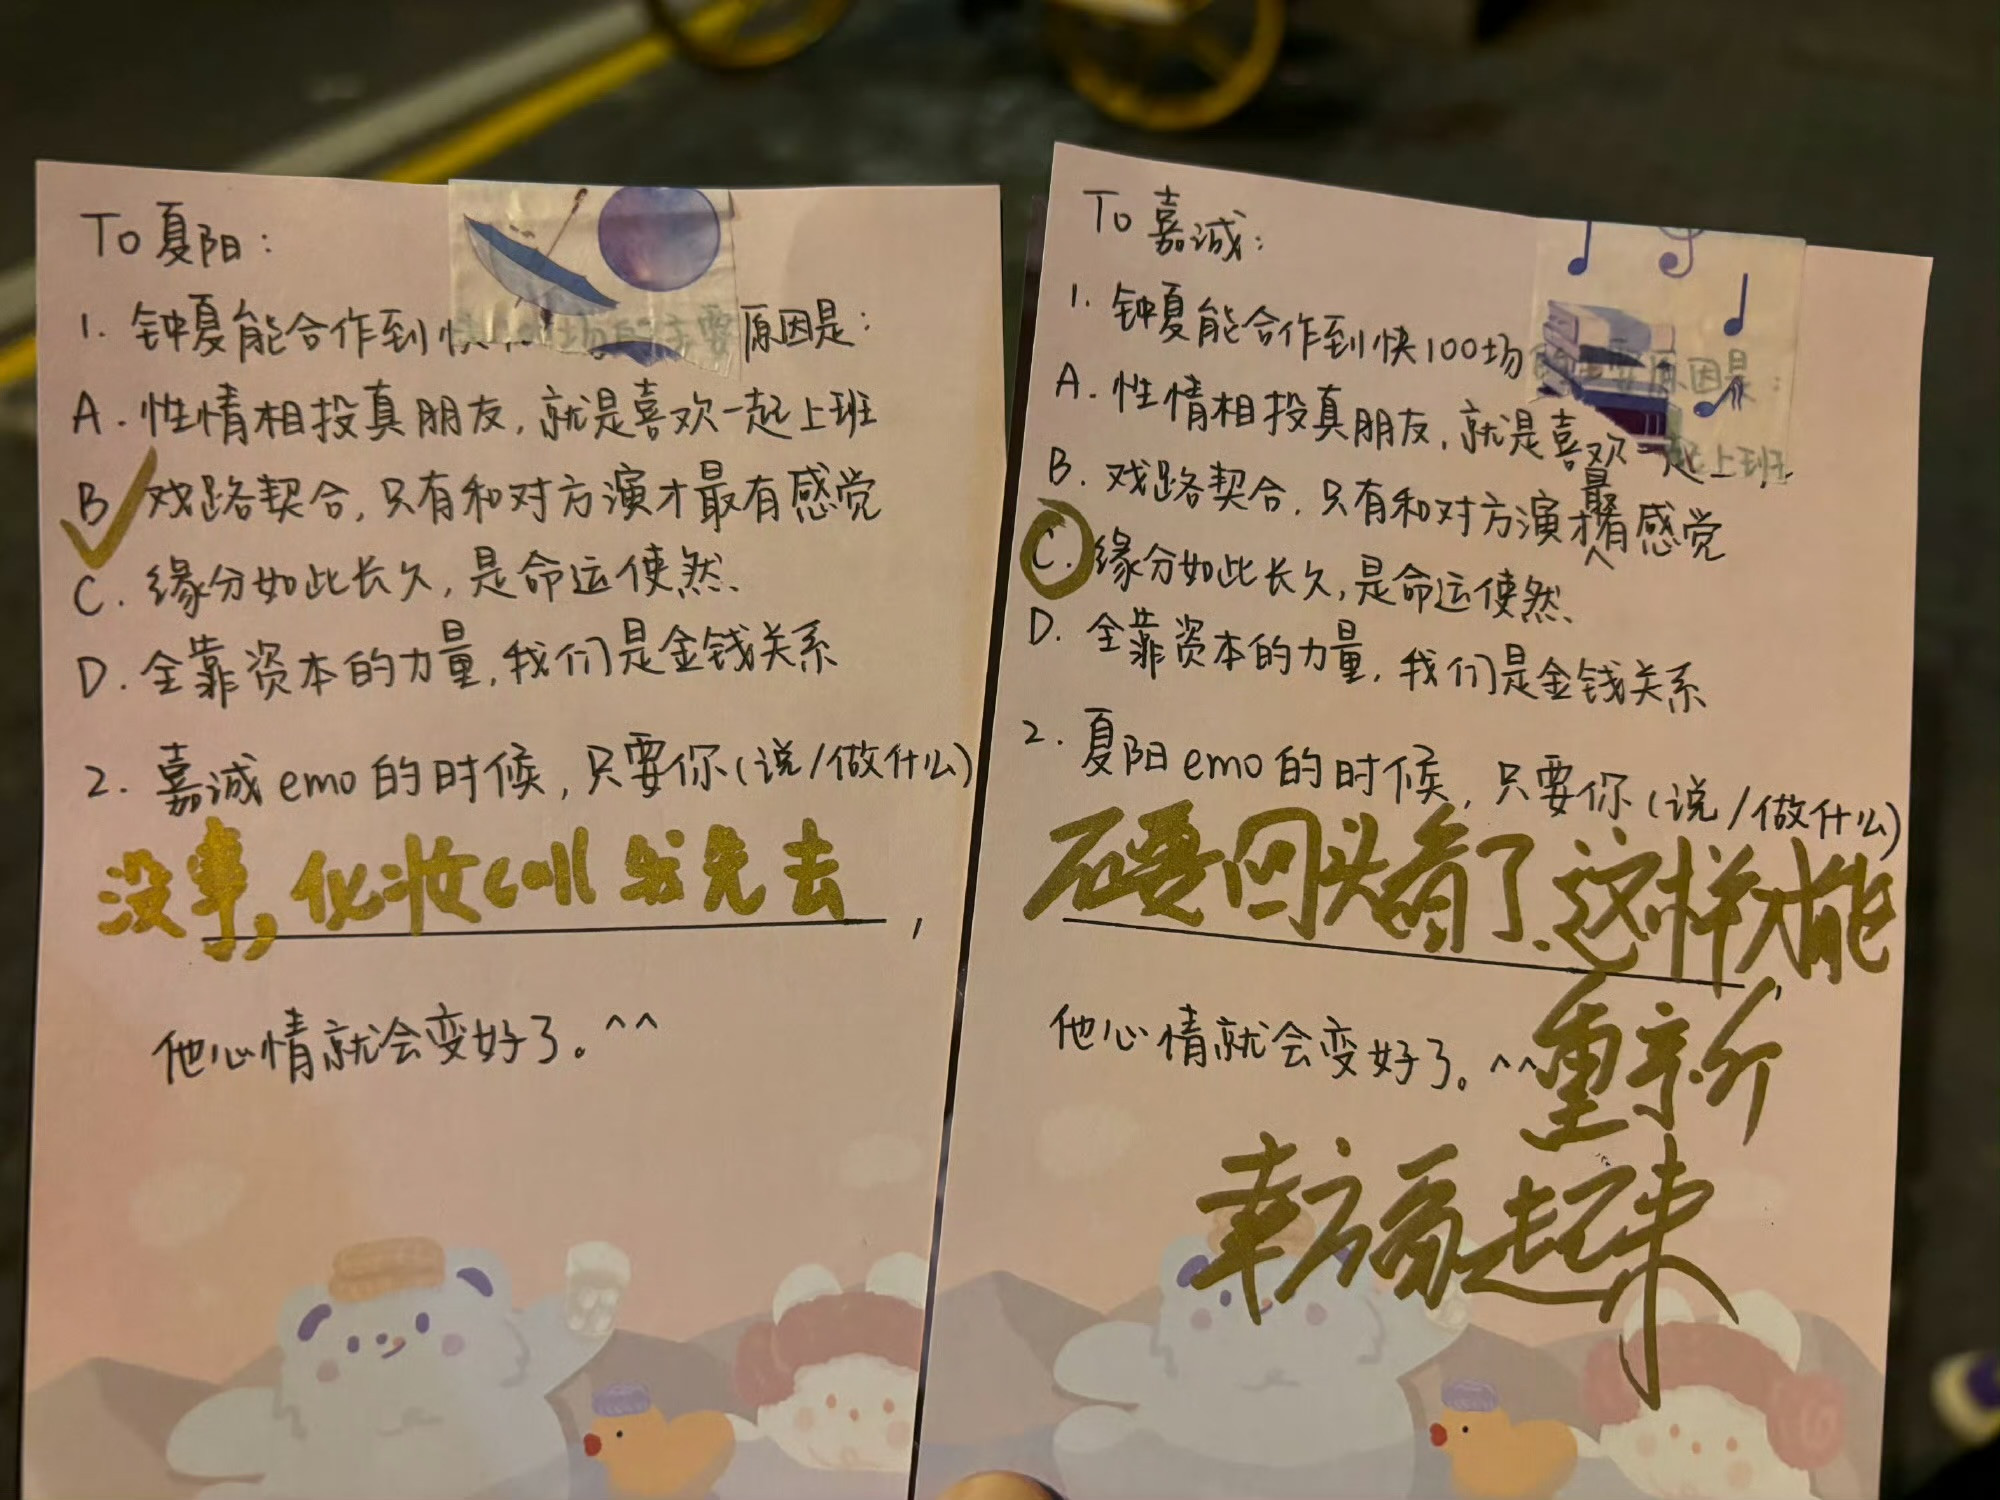 To 夏阳：
1. 钟夏能合作到快 场的主要原因是：
A. 性情相投真朋友，就是喜欢一起上班
B 戏路契合，只有和对方演才最有感觉
C. 缘分如此长久，是命运使然、
D. 全靠资本的力量，我们是金钱关系
2. 嘉诚emo的时候，只要你(说/做什么)
没事，化妆call 我先去，
他心情就会变好了。^^
To 嘉诚：
1. 钟夏能合作到快100场的主要原因是：
A. 性情相投真朋友，就是喜欢一起上班
B. 戏路契合，只有和对方演才最有感觉
C. 缘分如此长久，是命运使然、
D. 全靠资本的力量，我们是金钱关系
2. 夏阳emo的时候，只要你(说/做什么)
不要回头看了.这样才能
他心情就会变好了。^^重新
幸福起来